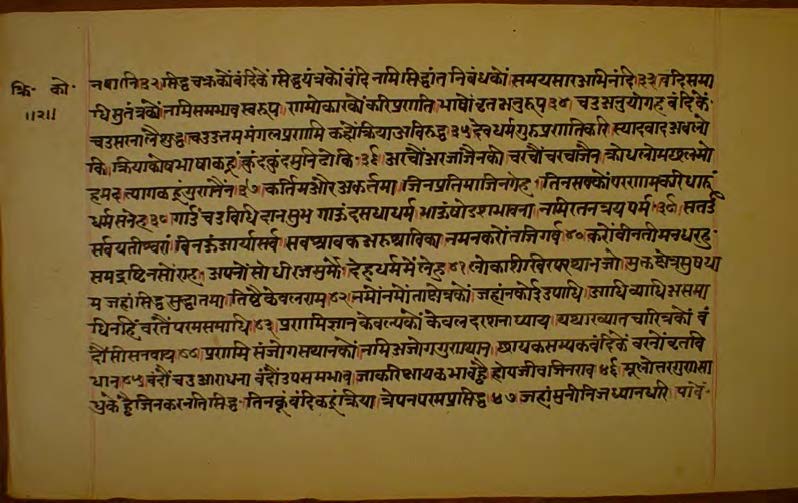 क्रि॰ को॰
॥२॥
नबानि ३२ सिद्ध चक्रकों बंदिकें सिद्धयंत्रकों बंदि नामि सिद्धांत निबंधकों समयसार अभिनंदि ३३ वंदि समा
धि सुतंत्रकों नमि समभाव स्वरूप णमोकारकों करि प्रणति भाषों वृत अनुरूप ३४ चउ अनुयोगह बंदिकें
चउ सरना लै शुद्ध चउ उत्तम मंगल प्रणमि कहों क्रिया अविरुद्ध ३५ देव धर्म गुरु प्रणति करि स्यादवाद अवलो
कि क्रियाकोष भाषा कहूं कुंदकुंद मुनि ढोकि ३६ अरचौं अरजा जैनकी चरचौं चरचा जैन क्रोध लोभ छल मो
ह मद त्याग कहूं गुरा बैंन ३७ कर्तिम और अकर्तमा जिन प्रतिमा जिनगेह तिन सबकों परणाम करि धारूं
धर्म सनेह ३८ गाउं चउ विधि दान सुभ गाऊं दसधा धर्म भाऊं षोडश भावना नमि रतनत्रय पर्म ३९ सतऊं
सर्व यतीश्वरा बिनऊं आर्या सर्व सब श्रावक अरु श्राविका नमन करों तजि गर्व ४० करों वीनती मन धर
सम द्रष्टिनसों एह अपनों सो धीरज मुझै देहु धर्ममें लेहु ४१ लोकाशिखिर परथान जो मुक्त क्षेत्र सुषधा
म जहां सिद्ध सुद्धातमा तिष्ठै केवलराम ४२ नमों नमों ता क्षेत्रकों जहां न कोई उपाधि आधि व्याधि असमा
धि नहिं वरतैं परम समाधि ४३ प्रणमि ज्ञान कैवल्यकों केवल दरशन ध्याय यथाख्यात चारित्रकों बं
दौं सीस नवाय ४४ प्रणमि संजोग सथानकों नमि अजोग गुणथान क्षायक सम्यक बंदिकें वरनों वृत वि
धान ४५ बंदौं चउ आराधना बंदौं उपसम भाव जाकरि क्षायक भाव ह्वै होय जीव जिनराव ४६ मूलोत्तर गुण सा
धुके ह्वै जिनकर नति सिद्ध तिनकूं बंदि कहूं क्रिया त्रेपन परम प्रसिद्ध ४७ जहां मुनी निज ध्यान धरि पावैं